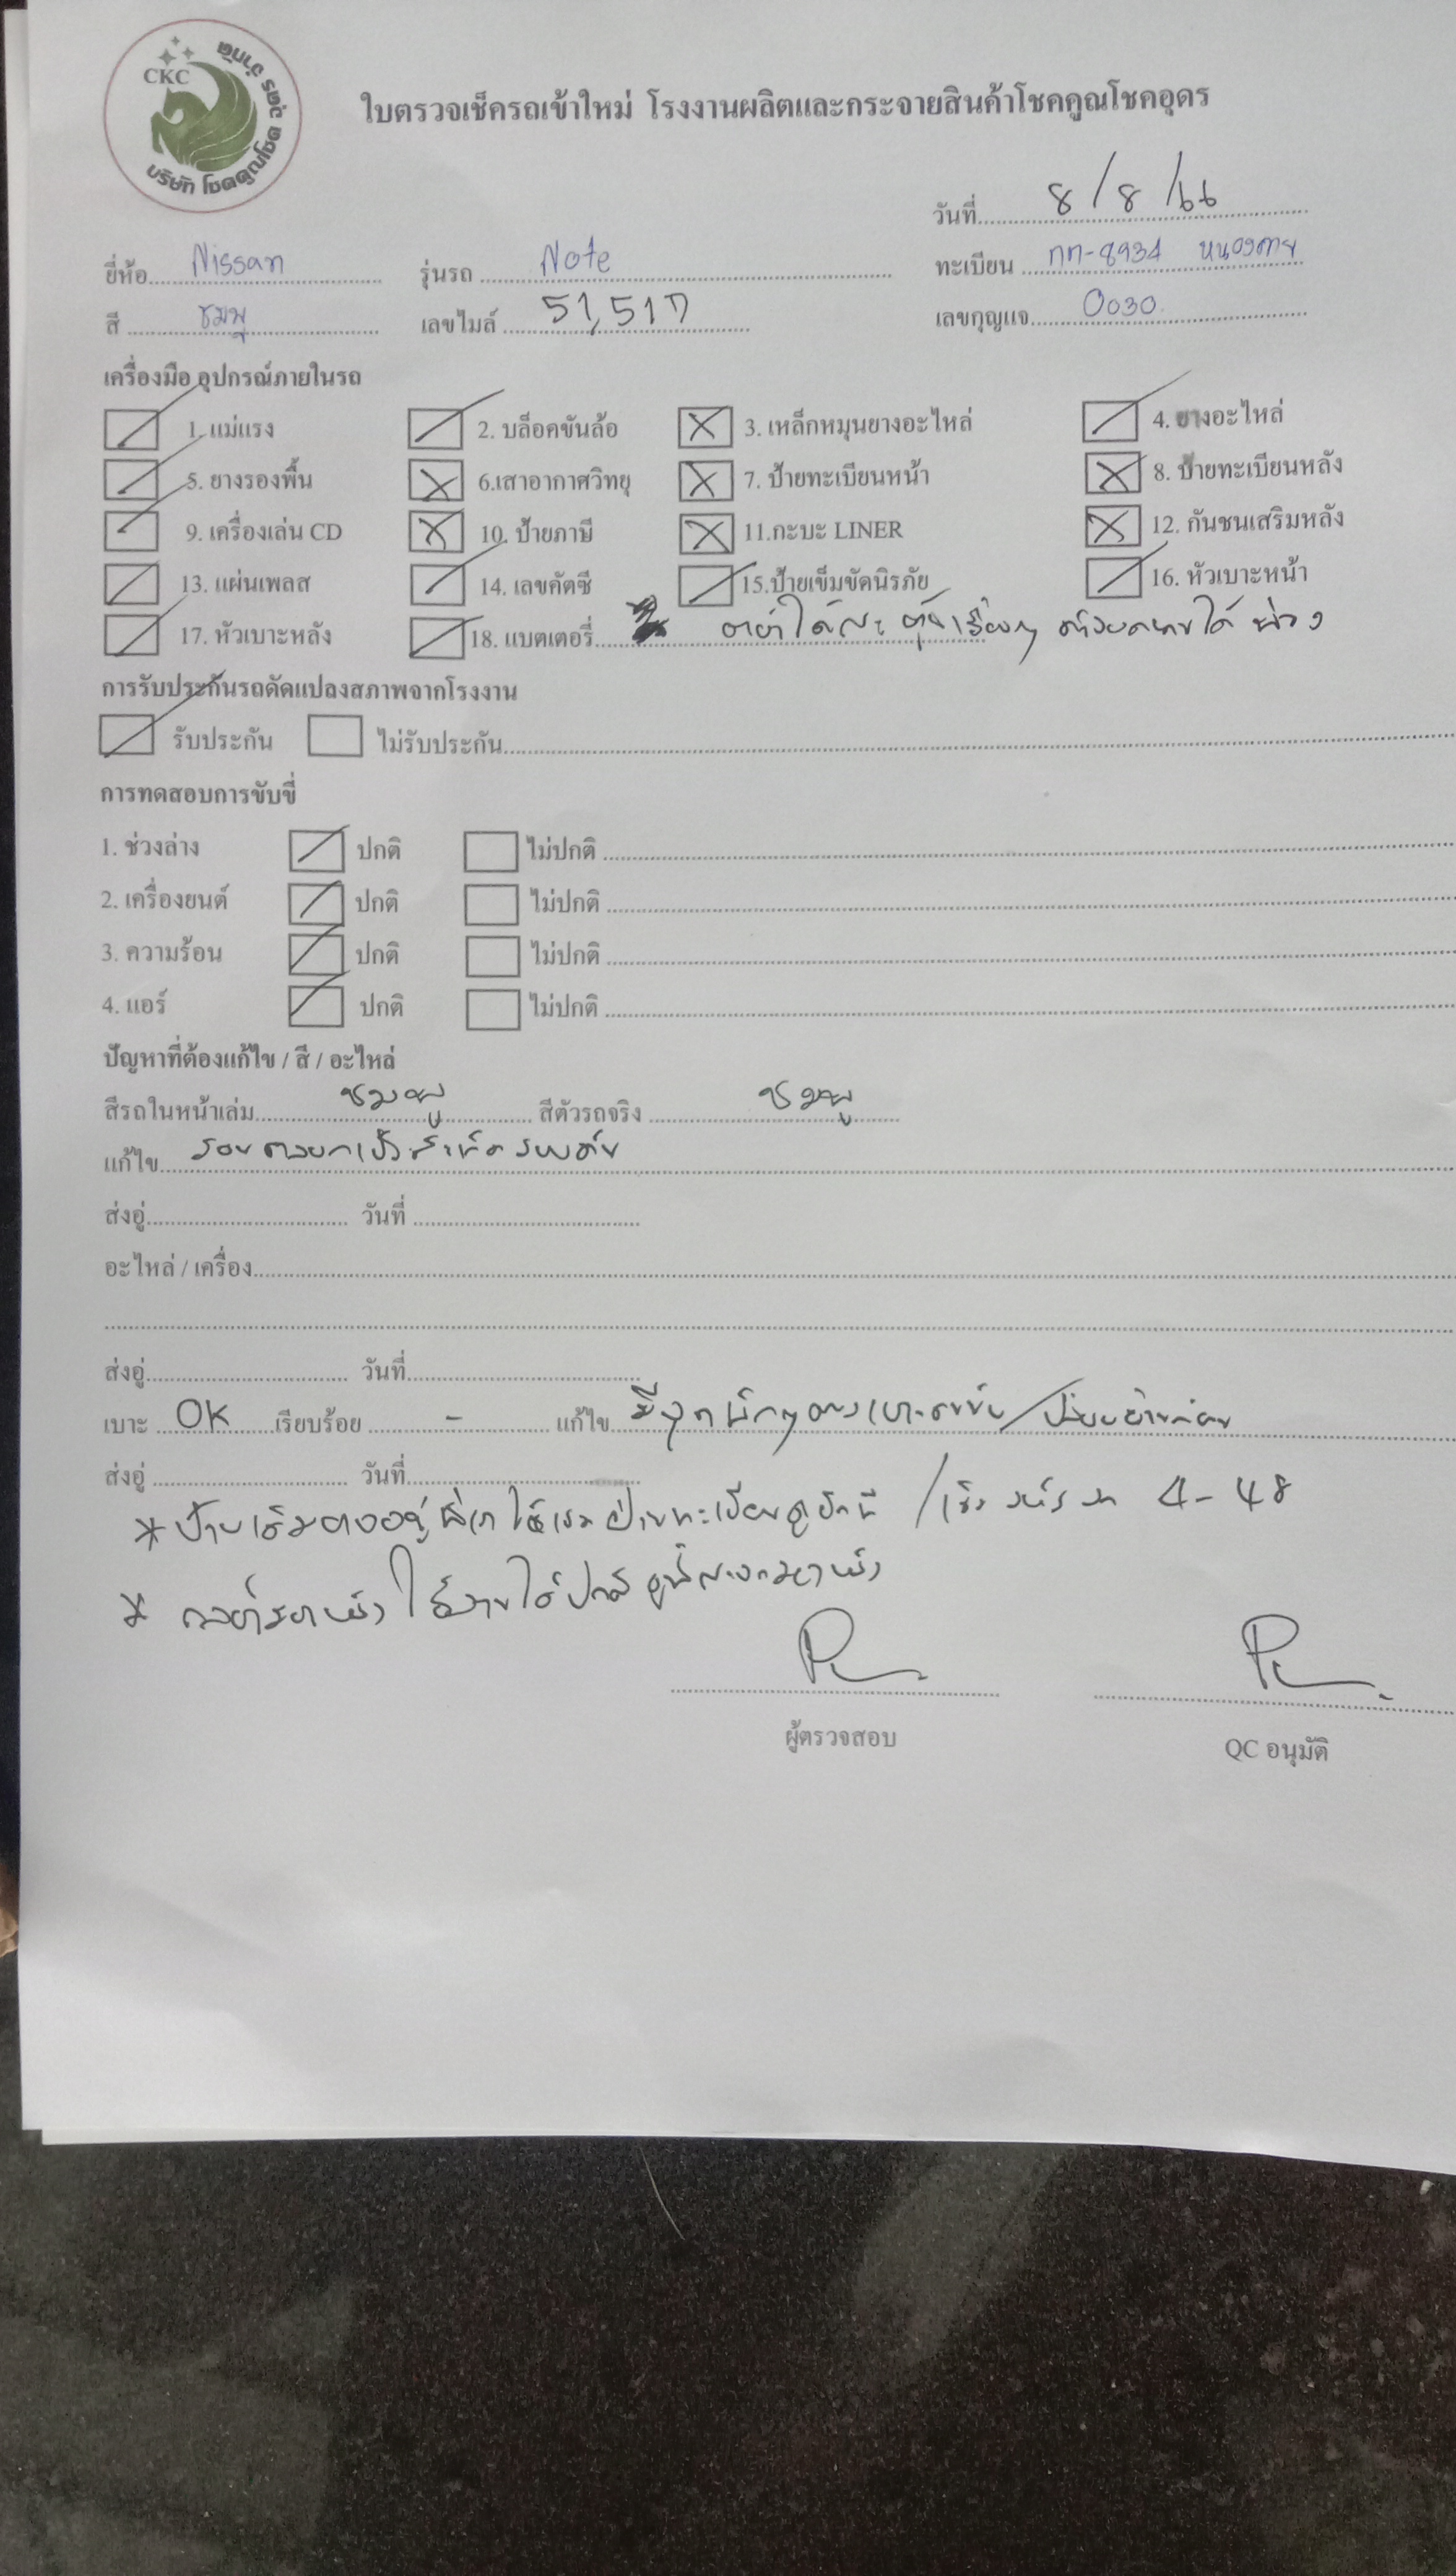 CKC
บริษัท โชคคูณโชค อุดร จำกัด
ใบตรวจเช็ครถเข้าใหม่ โรงงานผลิตและกระจายสินค้าโชคคูณโชคอุดร
วันที่ 8/8/66
ยี่ห้อ Nissan รุ่นรถ Note ทะเบียน กท-8934 หนองคาย
สี ชมพู เลขไมล์ 51,517 เลขกุญแจ 0030
เครื่องมือ อุปกรณ์ภายในรถ
1. แม่แรง 2. บล็อคขันล้อ 3. เหล็กหมุนยางอะไหล่ 4. ยางอะไหล่
5. ยางรองพื้น 6.เสาอากาศวิทยุ 7. ป้ายทะเบียนหน้า 8. ป้ายทะเบียนหลัง
9. เครื่องเล่น CD 10. ป้ายภาษี 11.กะบะ LINER 12. กันชนเสริมหลัง
13. แผ่นเพลส 14. เลขคัตซี 15.ป้ายเข็มขัดนิรภัย 16. หัวเบาะหน้า
17. หัวเบาะหลัง 18. แบตเตอรี่
การรับประกันรถดัดแปลงสภาพจากโรงงาน
รับประกัน ไม่รับประกัน
การทดสอบการขับขี่
1. ช่วงล่าง ปกติ ไม่ปกติ
2. เครื่องยนต์ ปกติ ไม่ปกติ
3. ความร้อน ปกติ ไม่ปกติ
4. แอร์ ปกติ ไม่ปกติ
ปัญหาที่ต้องแก้ไข / สี / อะไหล่
สีรถในหน้าเล่ม ชมพู สีตัวรถจริง ชมพู
แก้ไข
ส่งอู่ วันที่
อะไหล่ / เครื่อง
ส่งอู่ วันที่
เบาะ OK เรียบร้อย - แก้ไข
ส่งอู่ วันที่
4-48
ผู้ตรวจสอบ QC อนุมัติ